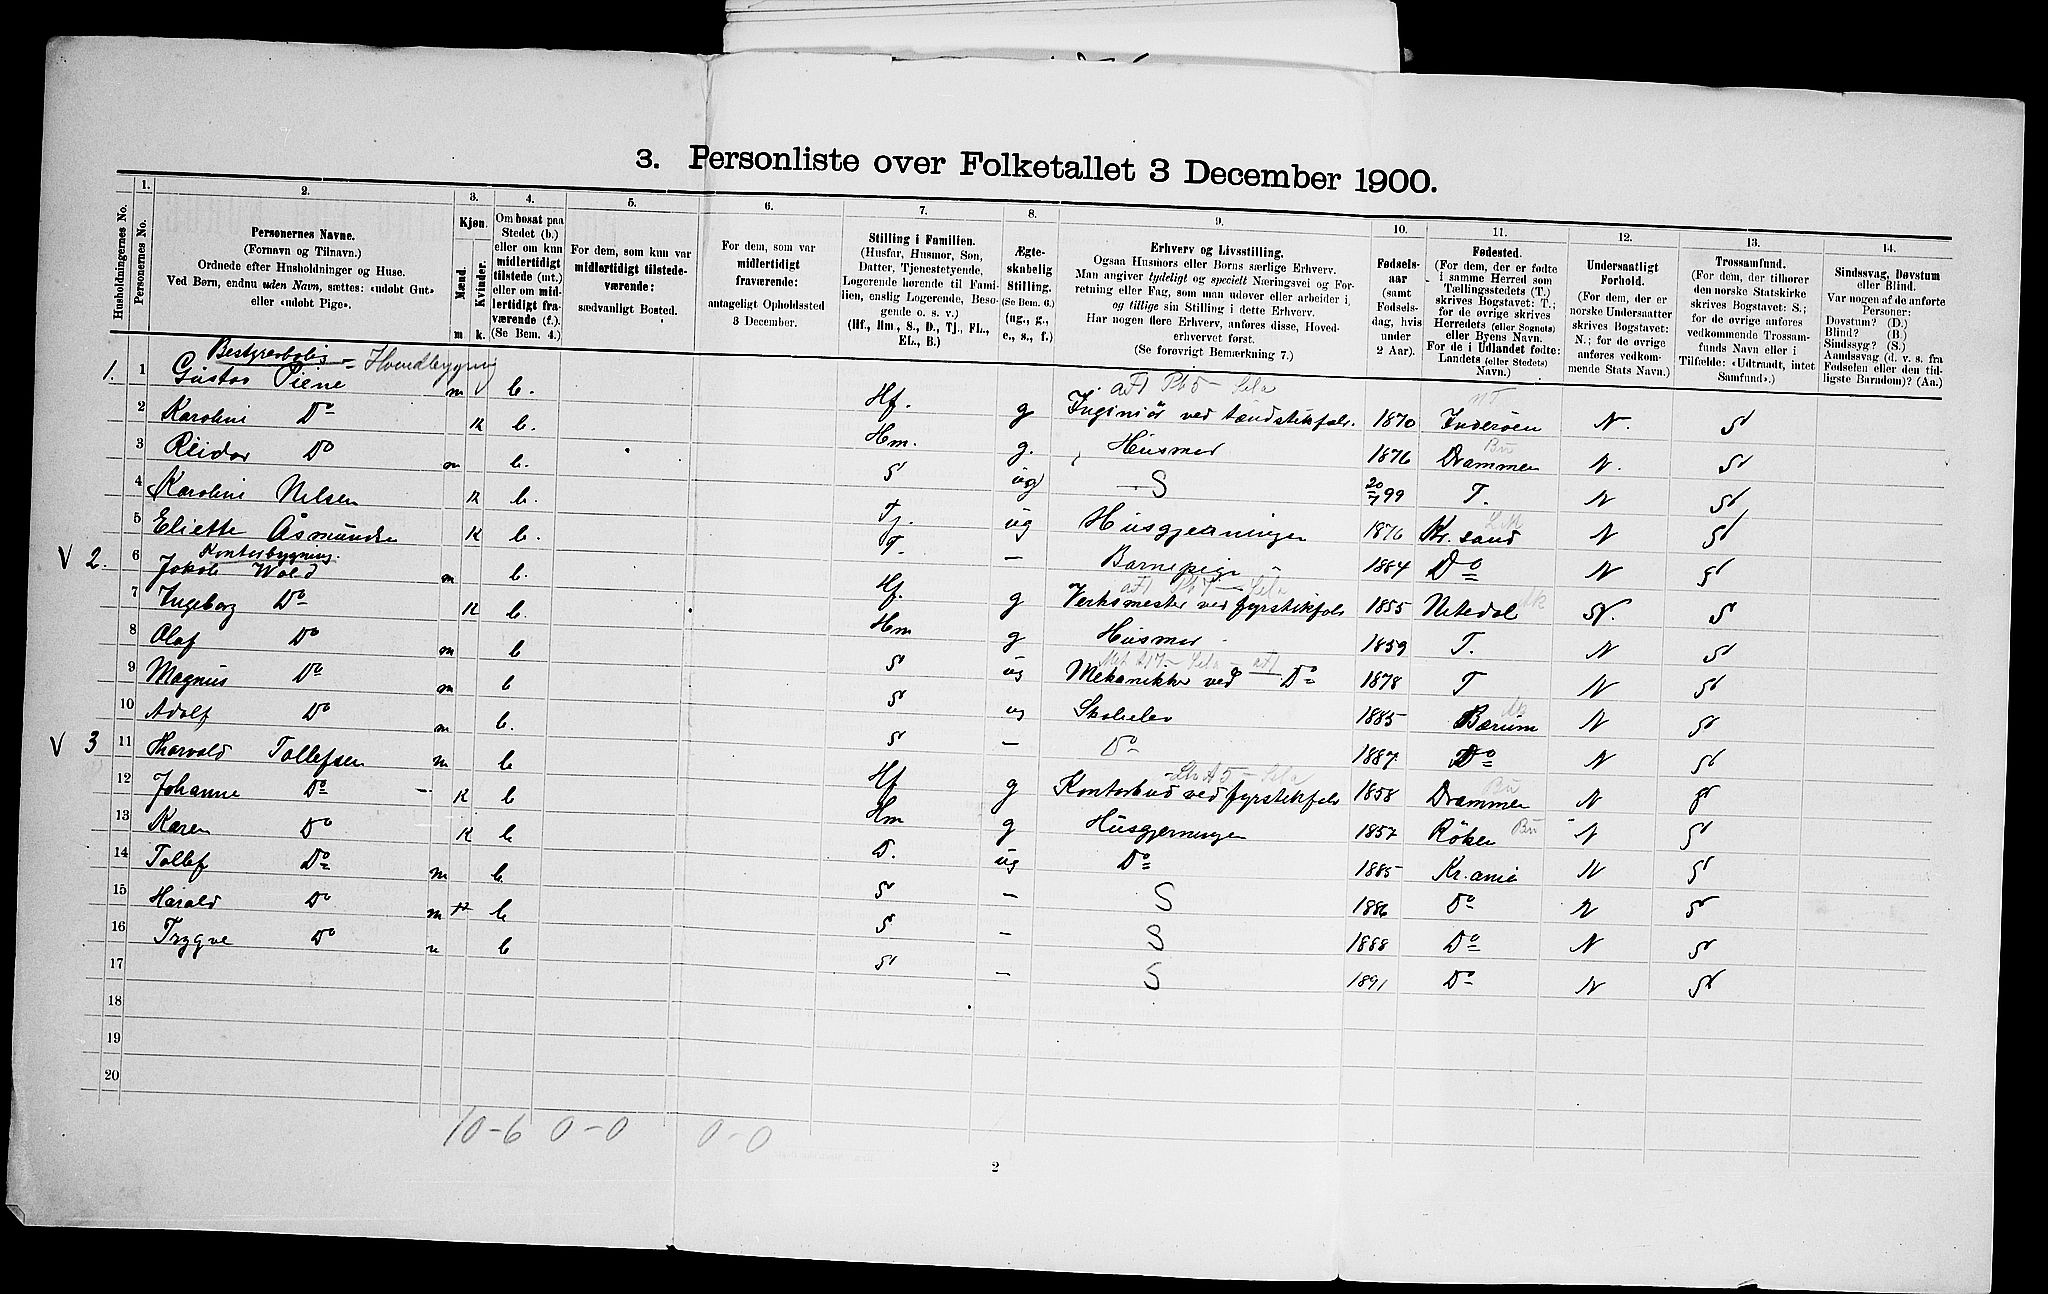 3. Personliste over Folketallet 3 December 1900.
Husholdningernes No.
1. Personernes No.
2. Personernes Navne.
(Fornavn og Tilnavn.)
Ordnede efter Husholdninger og Huse.
Ved Børn, endnu uden Navn, sættes: «udøbt Gut»
eller «udøbt Pige».
3. Kjøn.
Mænd. m
Kvinder. k.
4. Om bosat paa
Stedet (b.)
eller om kun
midlertidigt
tilstede (mt.)
eller om mid-
lertidigt fra-
værende (f.).
(Se Bem. 4.)
5. For dem, som kun var
midlertidigt tilstede-
værende:
sædvanligt Bosted.
6. For dem, som var
midlertidigt
fraværende:
antageligt Opholdssted
3 December.
7. Stilling i Familien.
(Husfar, Husmor, Søn,
Datter, Tjenestetyende,
Logerende hørende til Fami-
lien, enslig Logerende, Besø-
gende o. s. v.)
(Hf., Hm., S., D., Tj., FL.,
EL., B.)
8. Ægte-
skabelig
Stilling.
(Se Bem. 6.)
(ug., g.,
e., s., f.)
9. Erhverv og Livsstilling.
Ogsaa Husmors eller Børns særlige Erhverv.
Man angiver tydeligt og specielt Næringsvei og For-
retning eller Fag, som man udøver eller arbeider i,
og tillige sin Stilling i dette Erhverv.
Har nogen flere Erhverv, anføres disse, Hoved-
erhvervet først.
(Se forøvrigt Bemærkning 7.)
10. Fødsels-
aar
(samt
Fødsels-
dag, hvis
under
2 Aar).
11. Fødested.
(For dem, der er fødte
i samme Herred som
Tællingsstedets (T.)
skrives Bogstavet: T.;
for de øvrige skrives
Herredets (eller Sognets)
eller Byens Navn.
For de i Udlandet fødte:
Landets (eller Stedets)
Navn.)
12. Undersaatligt
Forhold.
(For dem, der er
norske Undersaatter
skrives Bogstavet:
N.; for de øvrige
anføres vedkom-
mende Stats Navn.)
13. Trossamfund.
(For dem, der tilhører
den norske Statskirke
skrives Bogstavet: S.;
for de øvrige anføres
vedkommende Trossam-
funds Navn eller i
Tilfælde: «Udtraadt, intet
Samfund».)
14. Sindssvag, Døvstum
eller Blind.
Var nogen af de anførte
Personer:
Døvstum? (D.)
Blind? (B.)
Sindssyg? (S.)
Aandssvag (d. v. s. fra
Fødselen eller den tid-
ligste Barndom)? (Aa.)
Bestyrerbolig = Hovedbygning
1. 1 Gustav Piene m b. Hf. g Ingeniør ved tændstikfabr. 1870 Inderøen N. S
2 Karoline Do K b. Hm. g. Husmor 1876 Drammen N. S
3 Reidar Do m b. S ug S 20/7 99 T. N S
4 Karoline Nilsen K b. Tj. ug Husgjerninger 1876 Kr.sand N S
5 Eliette Åsmundsen K b. T. – Barnepige 1884 Do N S
Kontorbygning.
V 2. 6 Jakob Wold m b. Hf. g Verksmester ved fyrstikfabr 1855 Nitedal N. S
7 Ingeborg Do K b. Hm g Husmor 1859 T. N S
8 Olaf Do m b S ug Mekaniker ved Do 1878 T N S
9 Magnus Do m b S ug Skoleelev 1885 Bærum N S
10 Adolf Do m b. S – Do 1887 Do N S
V 3 11 Tharvald Tollefsen m b Hf g Kontorbud ved fyrstikfabr 1858 Drammen N S
12 Johanne Do K b Hm g Husgjerninger 1857 Röken N S
13 Karen Do K b D. ug Do 1885 Kr.ania N S
14 Tollef Do m b. S – S 1886 Do N S
15 Harald Do m b S – S 1888 Do N S
16 Trygve Do m b S – S 1891 Do N S
17
18
19
20
10-6 0-0 0-0
2